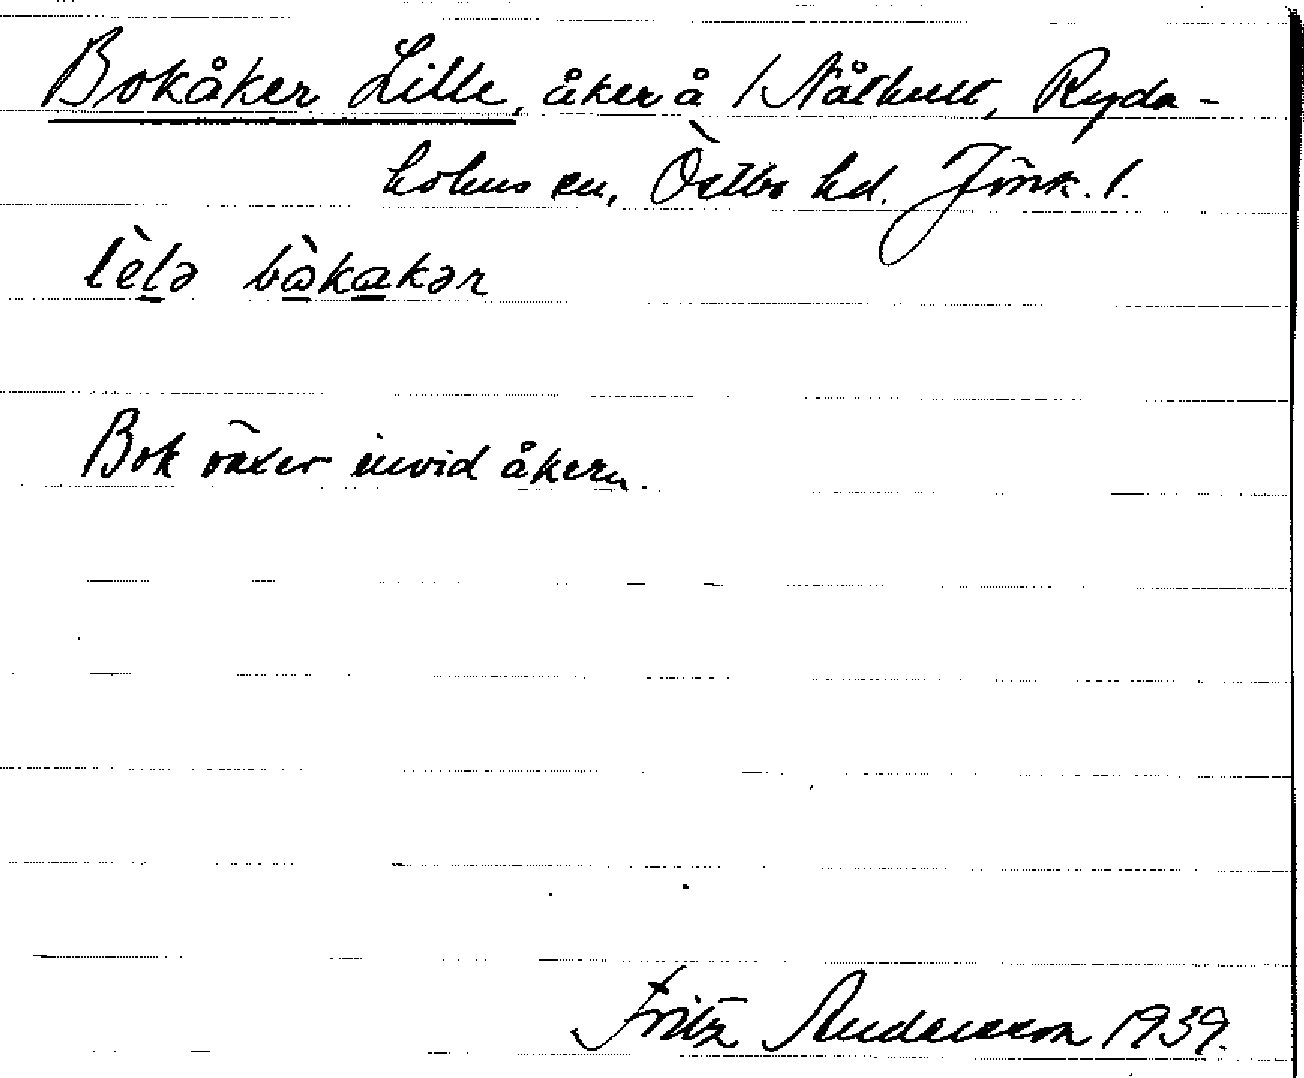 Bokåker Lille, åker å /Nålhult, Ryda-
holms sn, Östbo hd. Jönk. l.
lèlə bòkakər
Bok växer invid åkern.
Fritz Andersson 1939.